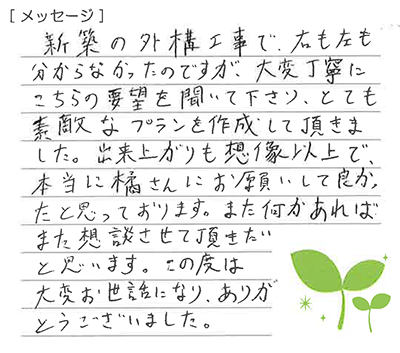 [メッセージ]
新築の外構工事で、右も左も
分からなかったのですが、大変丁寧に
こちらの要望を聞いて下さり、とても
素敵なプランを作成して頂きま
した。出来上がりも想像以上で、
本当に橘さんにお願いして良かっ
たと思っております。また何かあれば
また想談させて頂きたい
と思います。この度は
大変お世話になり、ありが
とうございました。